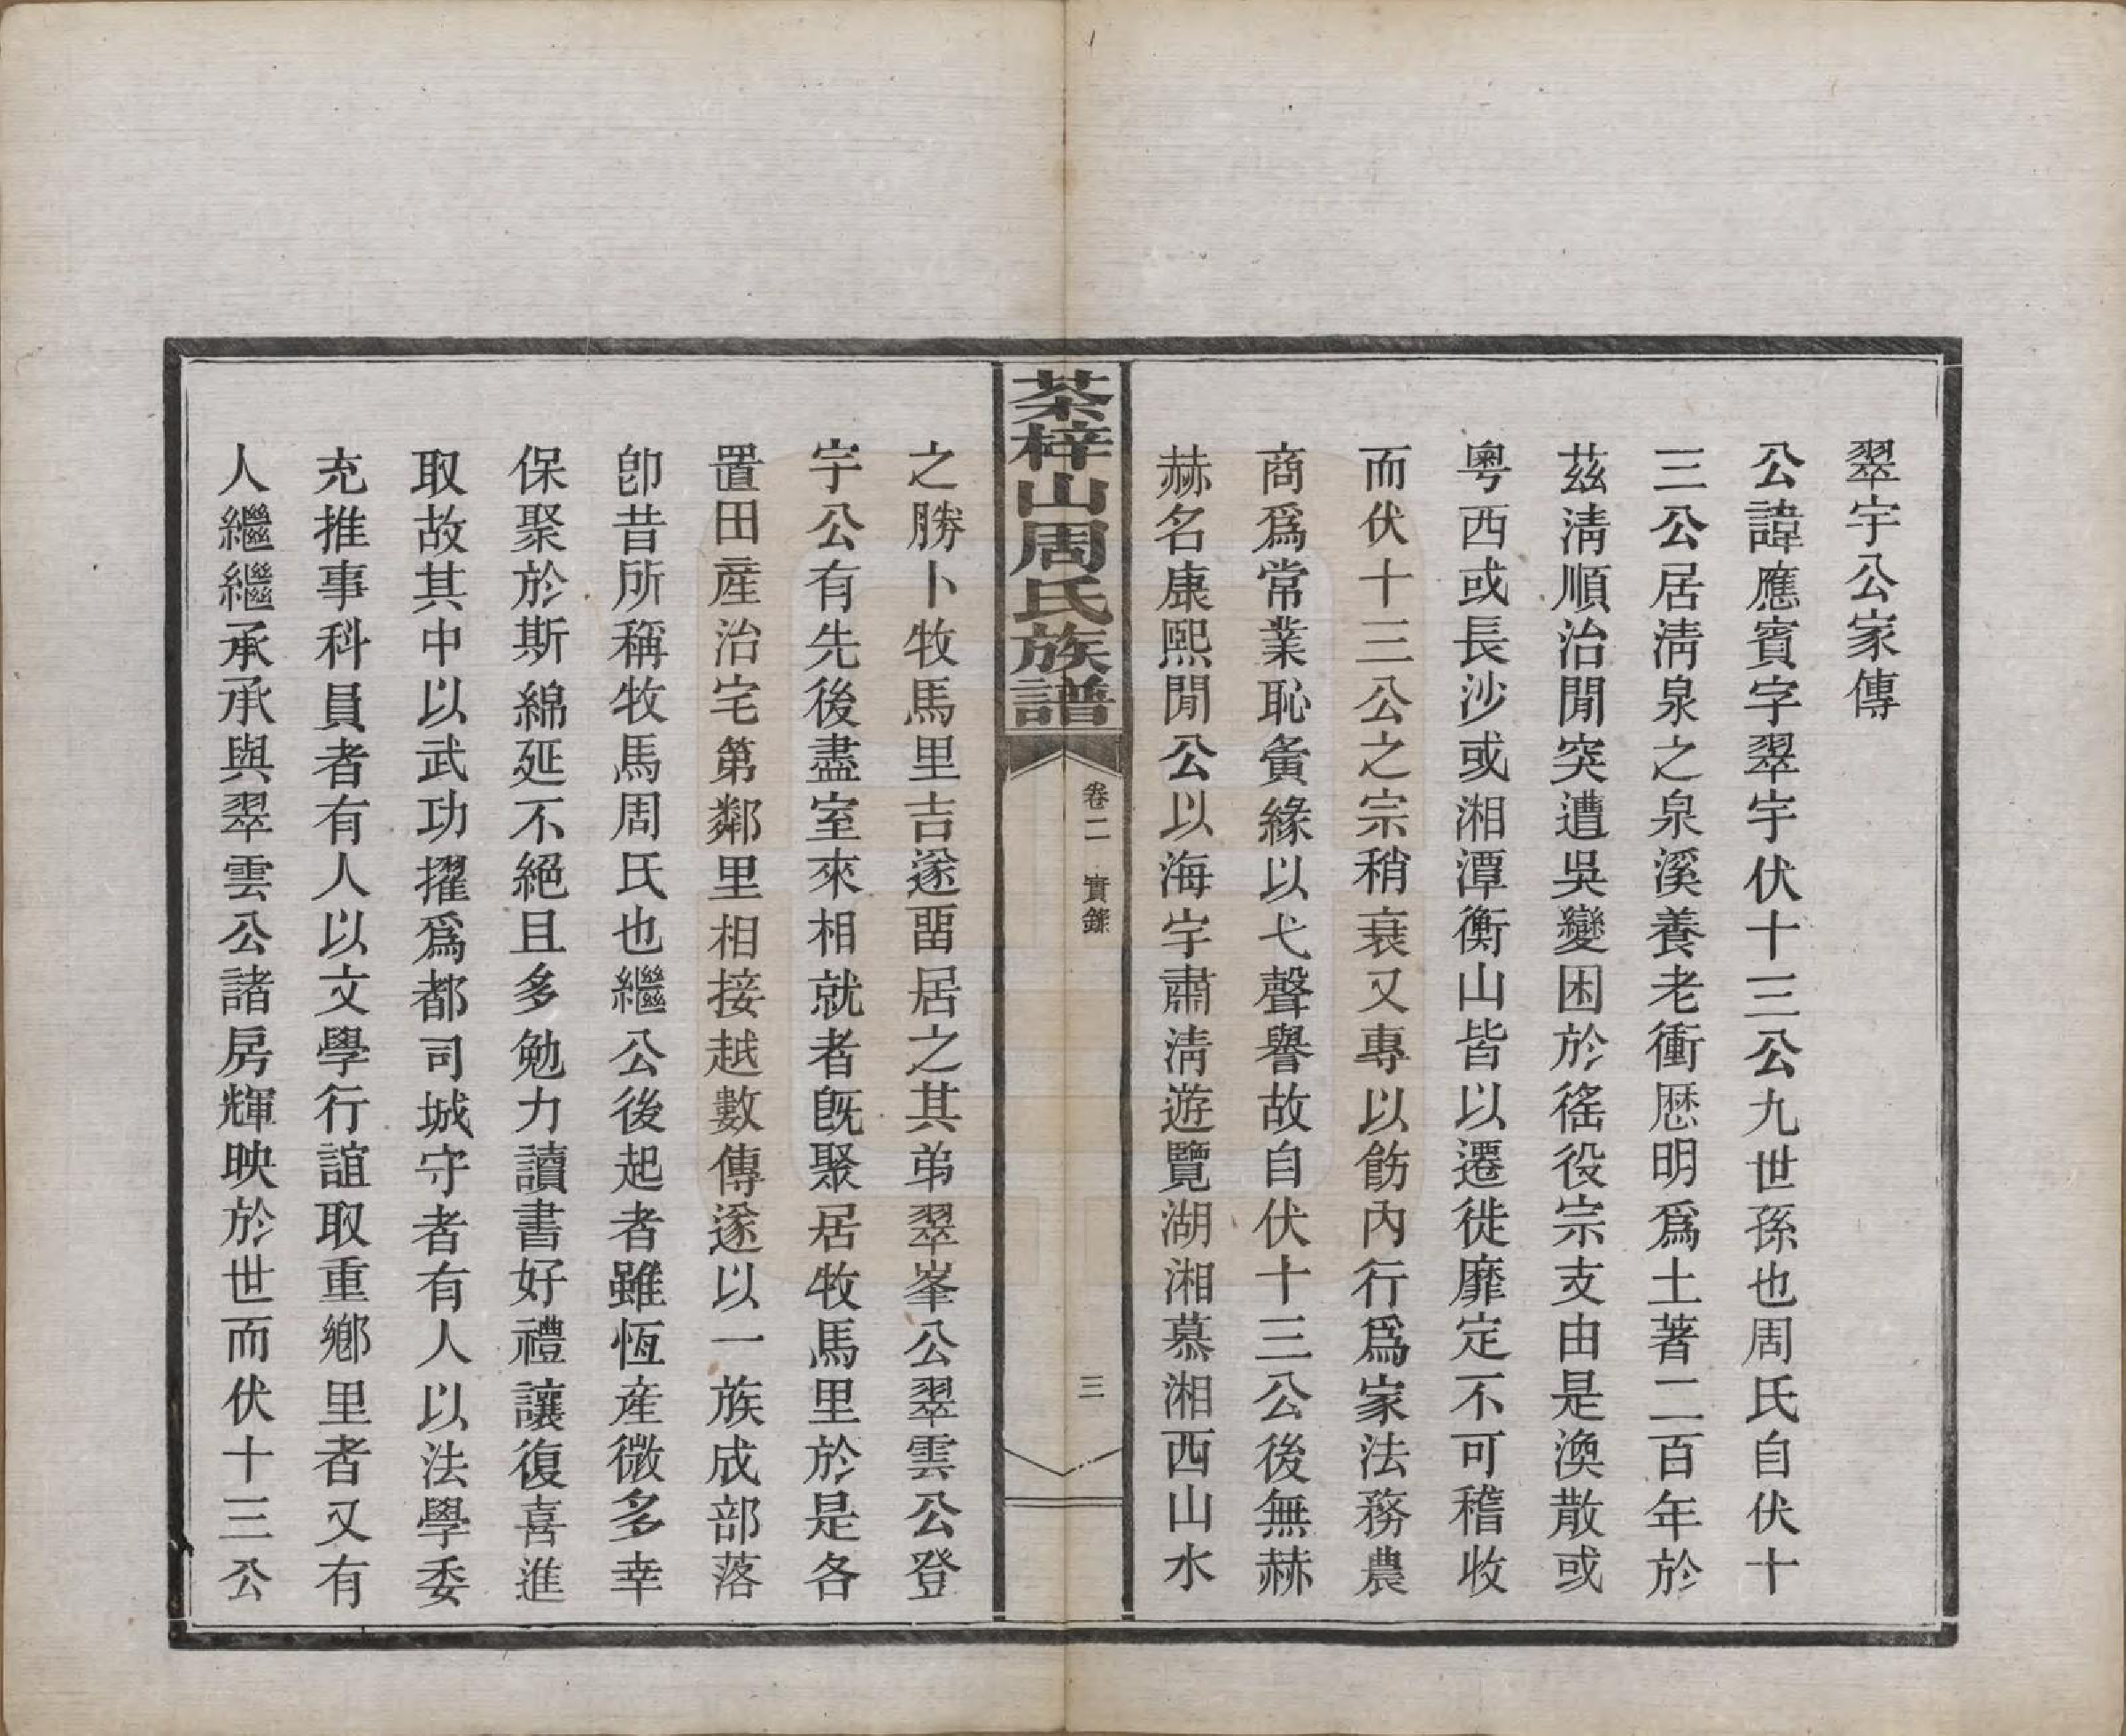 翠宇公家傳
公諱應賓字翠宇伏十三公九世孫也周氏自伏十
三公居淸泉之泉溪養老衝歷明爲土著二百年於
茲淸順治閒突遭吳變困於徭役宗支由是渙散或
粵西或長沙或湘潭衡山皆以遷徙靡定不可稽收
而伏十三公之宗稍衰又專以飭內行爲家法務農
商爲常業恥夤緣以弋聲譽故自伏十三公後無赫
赫名康熙閒公以海宇肅淸遊覽湖湘慕湘西山水
茶梓山周氏族譜
卷二 實錄
三
之勝卜牧馬里吉遂畱居之其弟翠峯公翠雲公登
宇公有先後盡室來相就者旣聚居牧馬里於是各
置田產治宅第鄰里相接越數傳遂以一族成部落
卽昔所稱牧馬周氏也繼公後起者雖恆產微多幸
保聚於斯綿延不絕且多勉力讀書好禮讓復喜進
取故其中以武功擢爲都司城守者有人以法學委
充推事科員者有人以文學行誼取重鄕里者又有
人繼繼承承與翠雲公諸房輝映於世而伏十三公